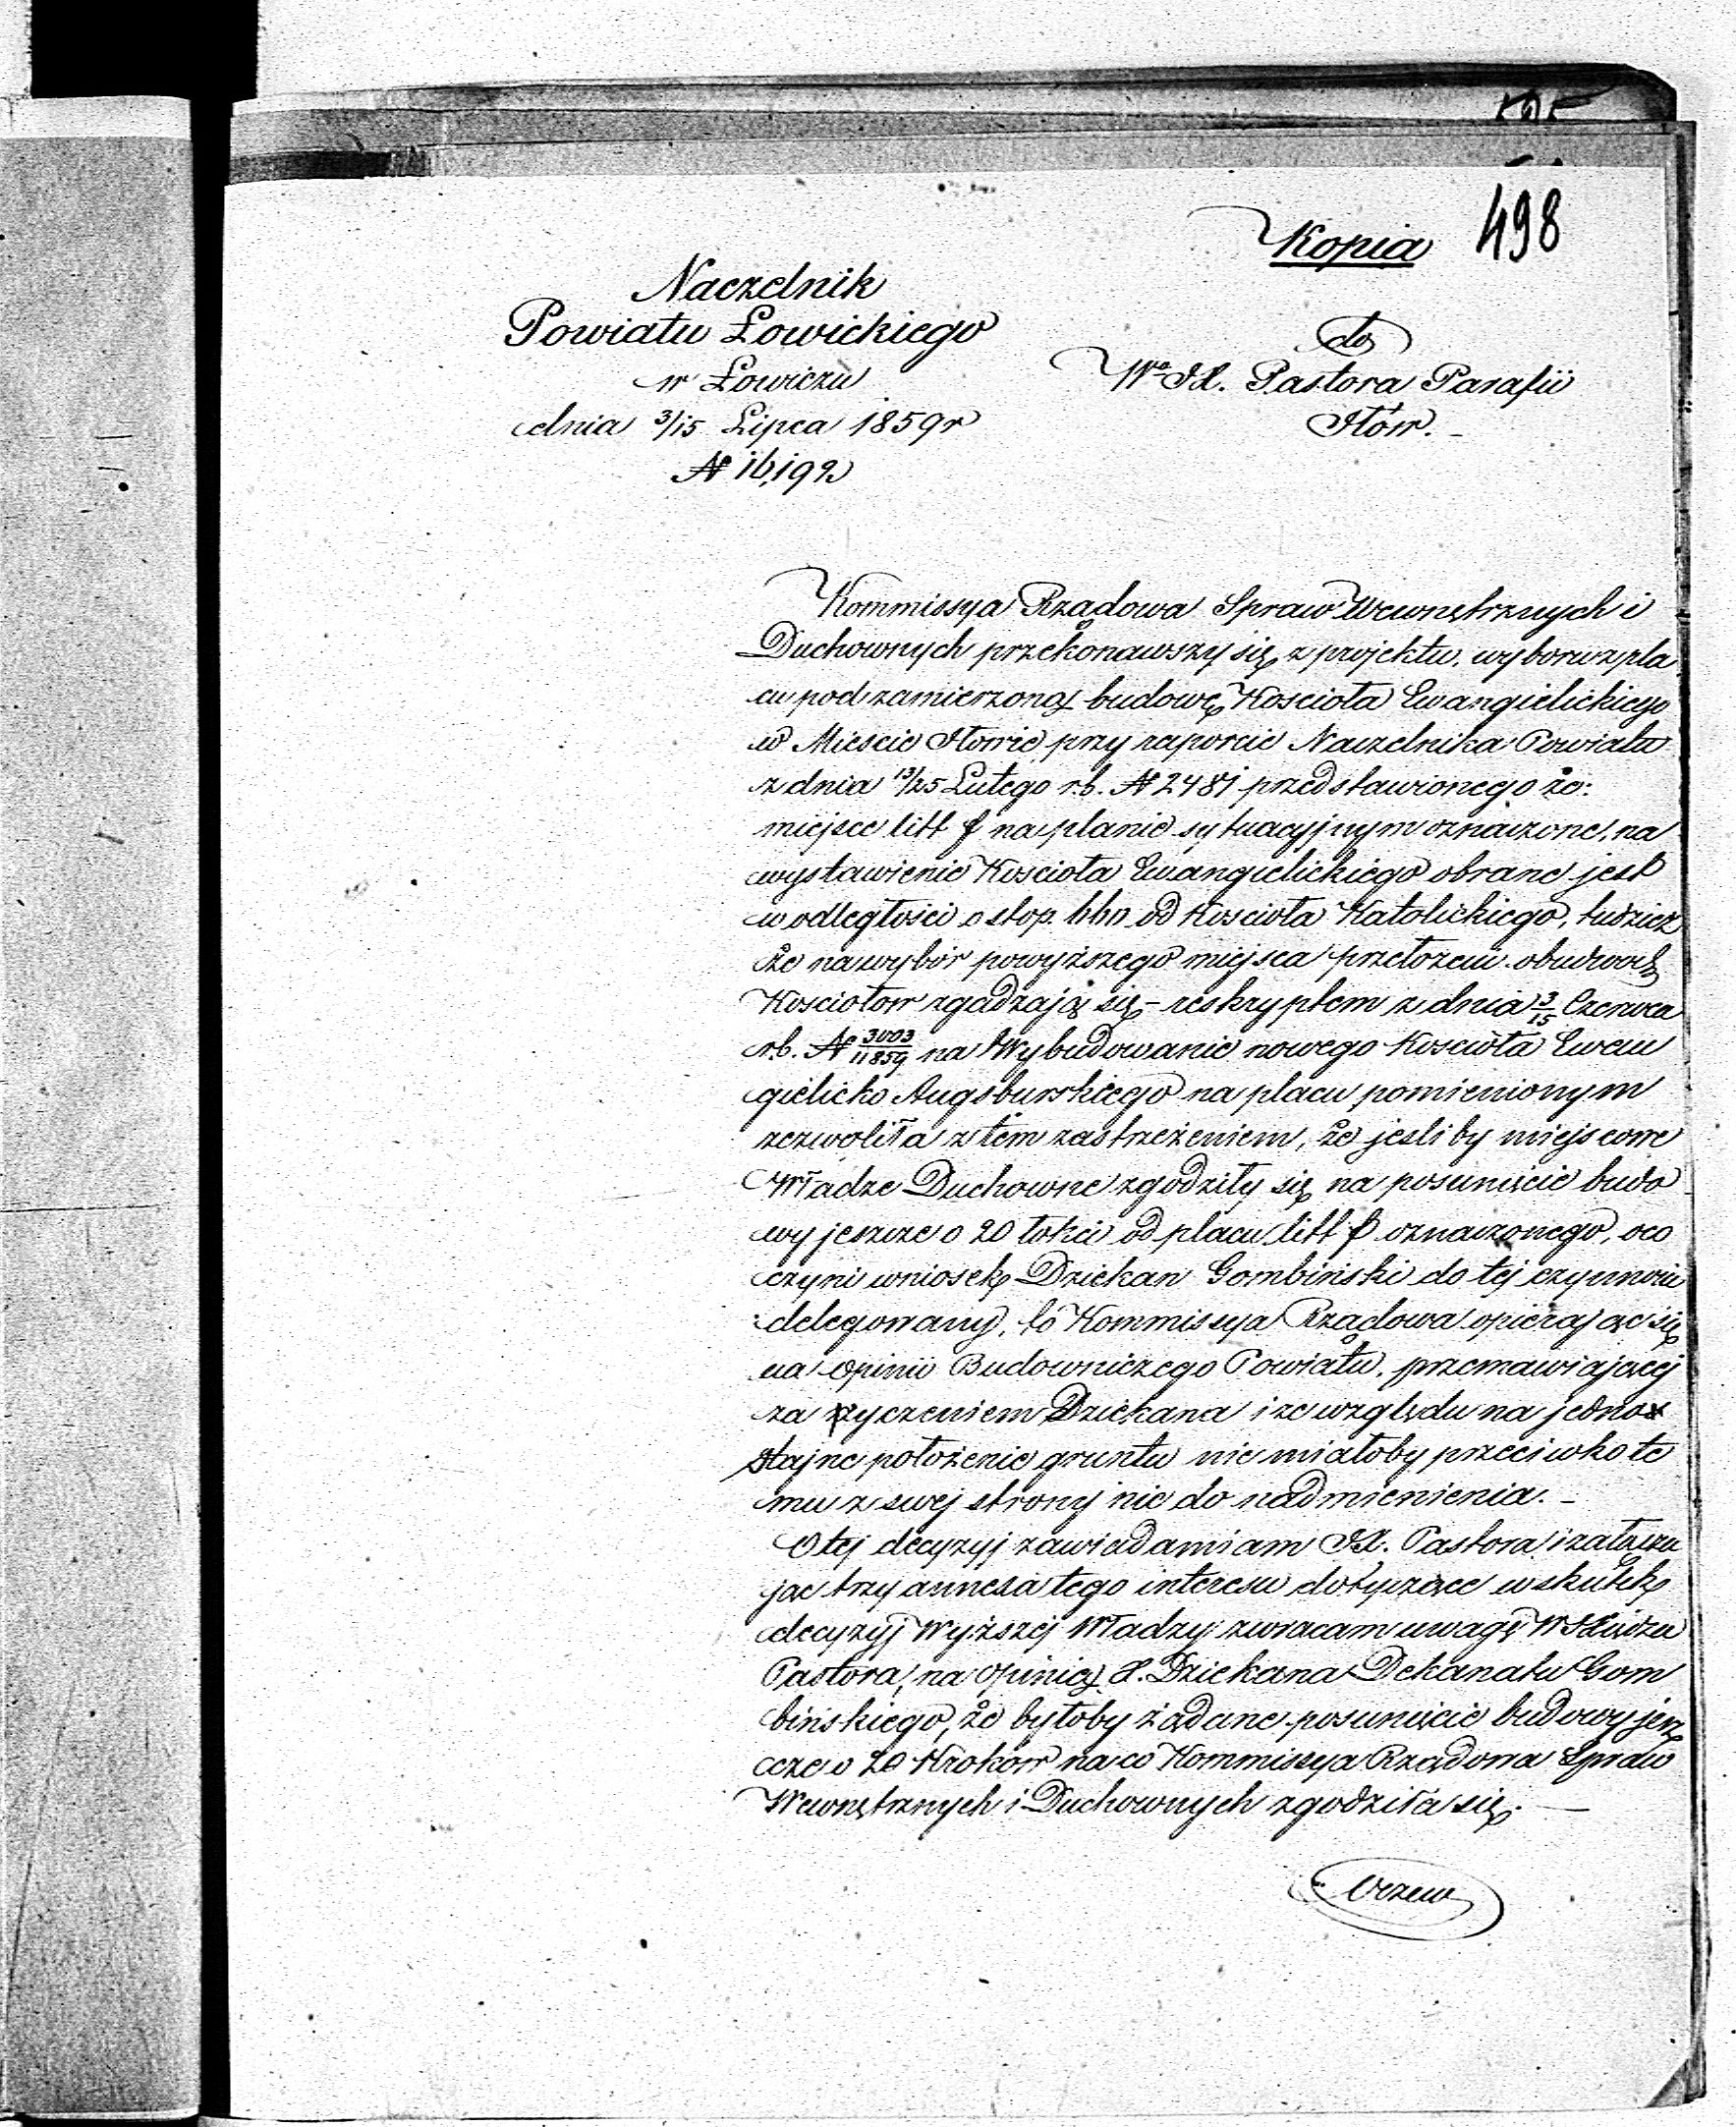 498
Kopia
Naczelnik
Powiatu Łowickiego
w Łowiczu
dnia 3/15 Lipca 1859 r
№ 16,192
do
Wº JX. Pastora Parafii
Iłów. -
Kommissya Rządowa Spraw Wewnętrznych i
Duchownych przekonawszy się z projektu, wyboru pla
cu pod zamierzoną budowę Kościoła Ewangielickiego
w Mieście Iłowie przy raporcie Naczelnika Powiatu
z dnia 13/25 Lutego r.b. № 2481 przedstawionego że:
miejsce litt f na planie sytuacyjnym oznaczone, na
wystawienie Kościoła Ewangielickiego obrane jest
w odległości o stop. od Kościoła Katolickiego, tudzież
że na wybór powyższego miejsca przełożeni obudwoch
Kościołow zgadzają się - reskryptem z dnia 3/15 Czerwca
r.b. № 3003/11859 na Wybudowanie nowego Kościoła Ewan
gielicko Augsburskiego na placu pomienionym
zezwoliła z tem zastrzeżeniem, że jeśli by miejscowe
Władze Duchowne zgodziły się na posunięcie budo
wy jeszcze o 20 łokci od placu litt f oznaczonego, oco
czyni wniosek Dziekan Gombiński do tej czynności
delegowany, to Kommissya Rządowa opierając się
na opinii Budowniczego Powiatu, przemawiającej
za życzeniem Dziekana i ze względu na jedno
stajne położenie gruntu nie miałoby przeciwko te
mu z swej strony nic do nadmienienia. -
O tej decyzyi zawiadamiam JX. Pastora i załącza
jąc trzy annexa tego interesu dotyczące w skutek
decyzyj Wyższej Władzy zwracam uwagę W Xiędza
Pastora, na opinię X. Dziekana Dekanatu Gom
bińskiego, że byłoby żądane posunięcie budowy jesz
cze o 20 Krokow na co Kommissya Rządowa Spraw
Wewnętrznych i Duchownych zgodziła się. -